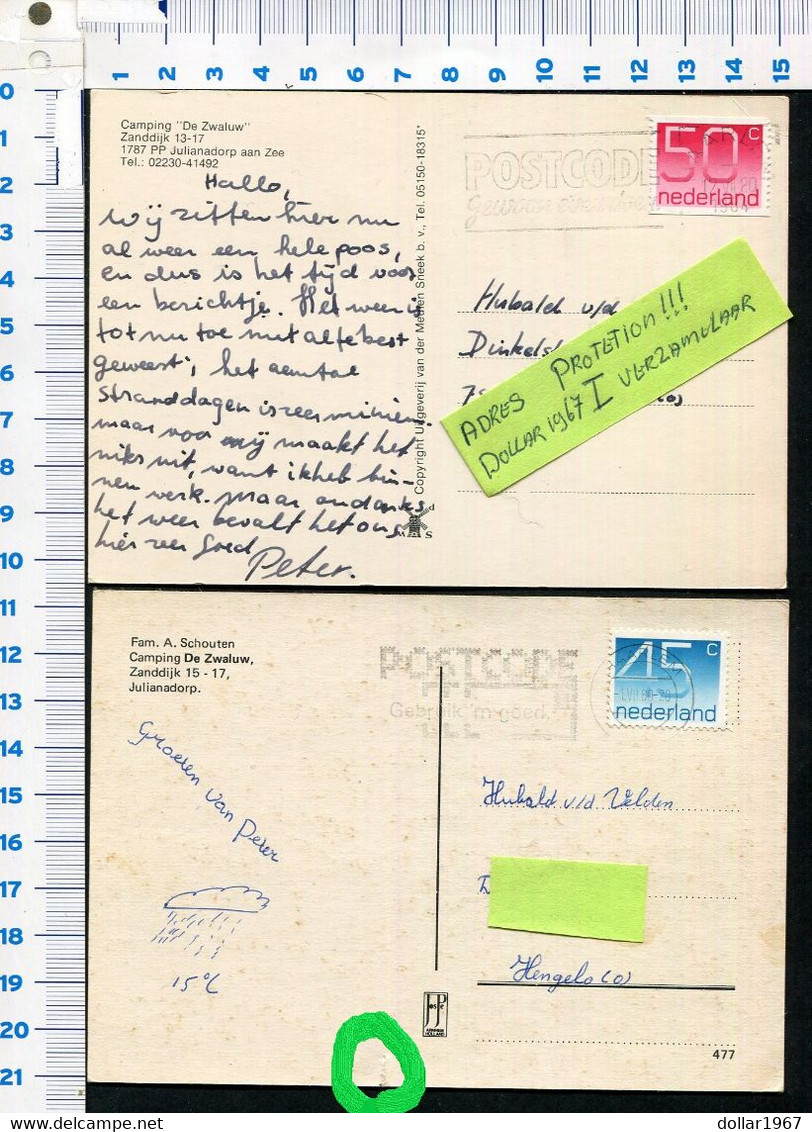 0 1 2 3 4 5 6 7 8 9 10 11 12 13 14 15 16 17 18 19 20 21
1 2 3 4 5 6 7 8 9 10 11 12 13 14 15
Camping "De Zwaluw"
Zanddijk 13-17
1787 PP Julianadorp aan Zee
Tel.: 02230-41492
Hallo,
Wij zitten hier nu
al weer een hele poos,
en dus is het tijd voor
een berichtje. Het weer is
tot nu toe niet al te best
geweest, het aantal
stranddagen is zeer miniem
maar voor mij maakt het
niks uit, want ik heb bin-
nen werk. Maar ondanks
het weer bevalt het ons
hier zeer goed
Peter.
Copyright Uitgeverij van der Meulen Sneek b. v., Tel. 05150-18315*
v d
M S
POSTCODE
50 c
nederland
1984
Hubald v/d
Dinkelst
ADRES PROTETION!!!
DOLLAR 1967 I VERZAMELAAR
Fam. A. Schouten
Camping De Zwaluw,
Zanddijk 15 - 17,
Julianadorp.
POSTCODE
Gebruik 'm goed.
45 c
nederland
Groeten van Peter
15°C
Hubald v/d Velden
Hengelo (O)
JosPe
ARNHEM
HOLLAND
477
delcampe.net
dollar1967